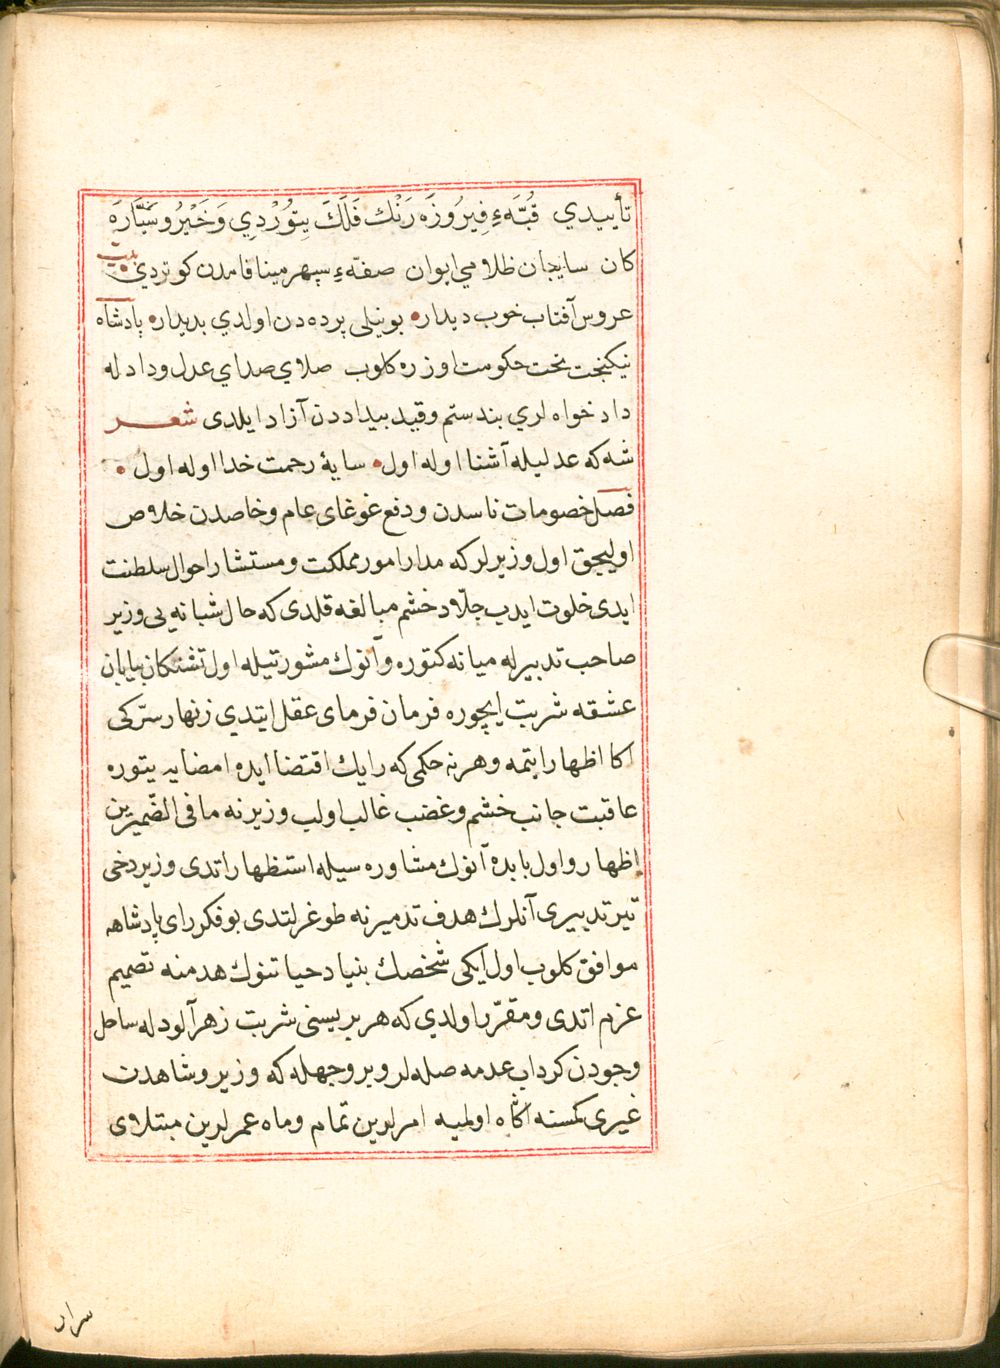 تأييدي قُبَّهَءِ فِيرُوزَه رَنْك فَلَكَ يِتُورْدِي وَخَيْرُو سَيَّارَهَ
كان سايبان ظلامي ايوان صفهءِ سپهر مينا فامدن كوتردي بيت
عروس آفتاب خوب ديدار • بو نيلى پرده دن اولدي بديدار • پادشاه
نيكبخت تخت حكومت اوزره كلوب صلاي صداي عدل وداد له
داد خواه لري بند ستم وقيد بيداددن آزاد ايلدى شعر
شه كه عدليله آشنا اوله اول • سايۀ رحمت خدا اوله اول •
فصل خصومات ناسدن ودفع غوغاى عام وخاصدن خلاص
اوليجق اول وزيرلر كه مدار امور مملكت ومستشار احوال سلطنت
ايدى خلوت ايدب جلّاد خشم مبالغه قلدى كه حال شبانه يى وزير
صاحب تدبيرله ميانه كتوره وآنوك مشورتيله اول تشنكان بيابان
عشقه شربت ايچوره فرمان فرماى عقل ايتدي زنهار سرّكى
اكا اظهار ايتمه وهر نه حكمى كه رايك اقتضا ايده امضايه يتوره
عاقبت جانب خشم وغضب غالب اولب وزيرنه ما فى الضّميرين
اظهار و اول بابده آنوك مشاوره سيله استظهار اتدى وزير دخى
تير تدبيرى آنلرك هدف تدميرنه طوغرلتدى بو فكر راى پادشاهه
موافق كلوب اول ايكى شخصك بنياد حياتنوك هدمنه تصميم
عزم اتدى ومقرّر اولدي كه هر بريسنى شربت زهر آلودله ساحل
وجودن كرداب عدمه صله لر وبر وجهله كه وزير وشاهدن
غيرى كمسنه آكاه اولميه امرلرين تمام وماه عمرلرين مبتلاى
سرار